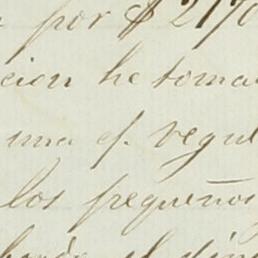 por $ 2170
cion he toma
una ef. regul
los pequeños